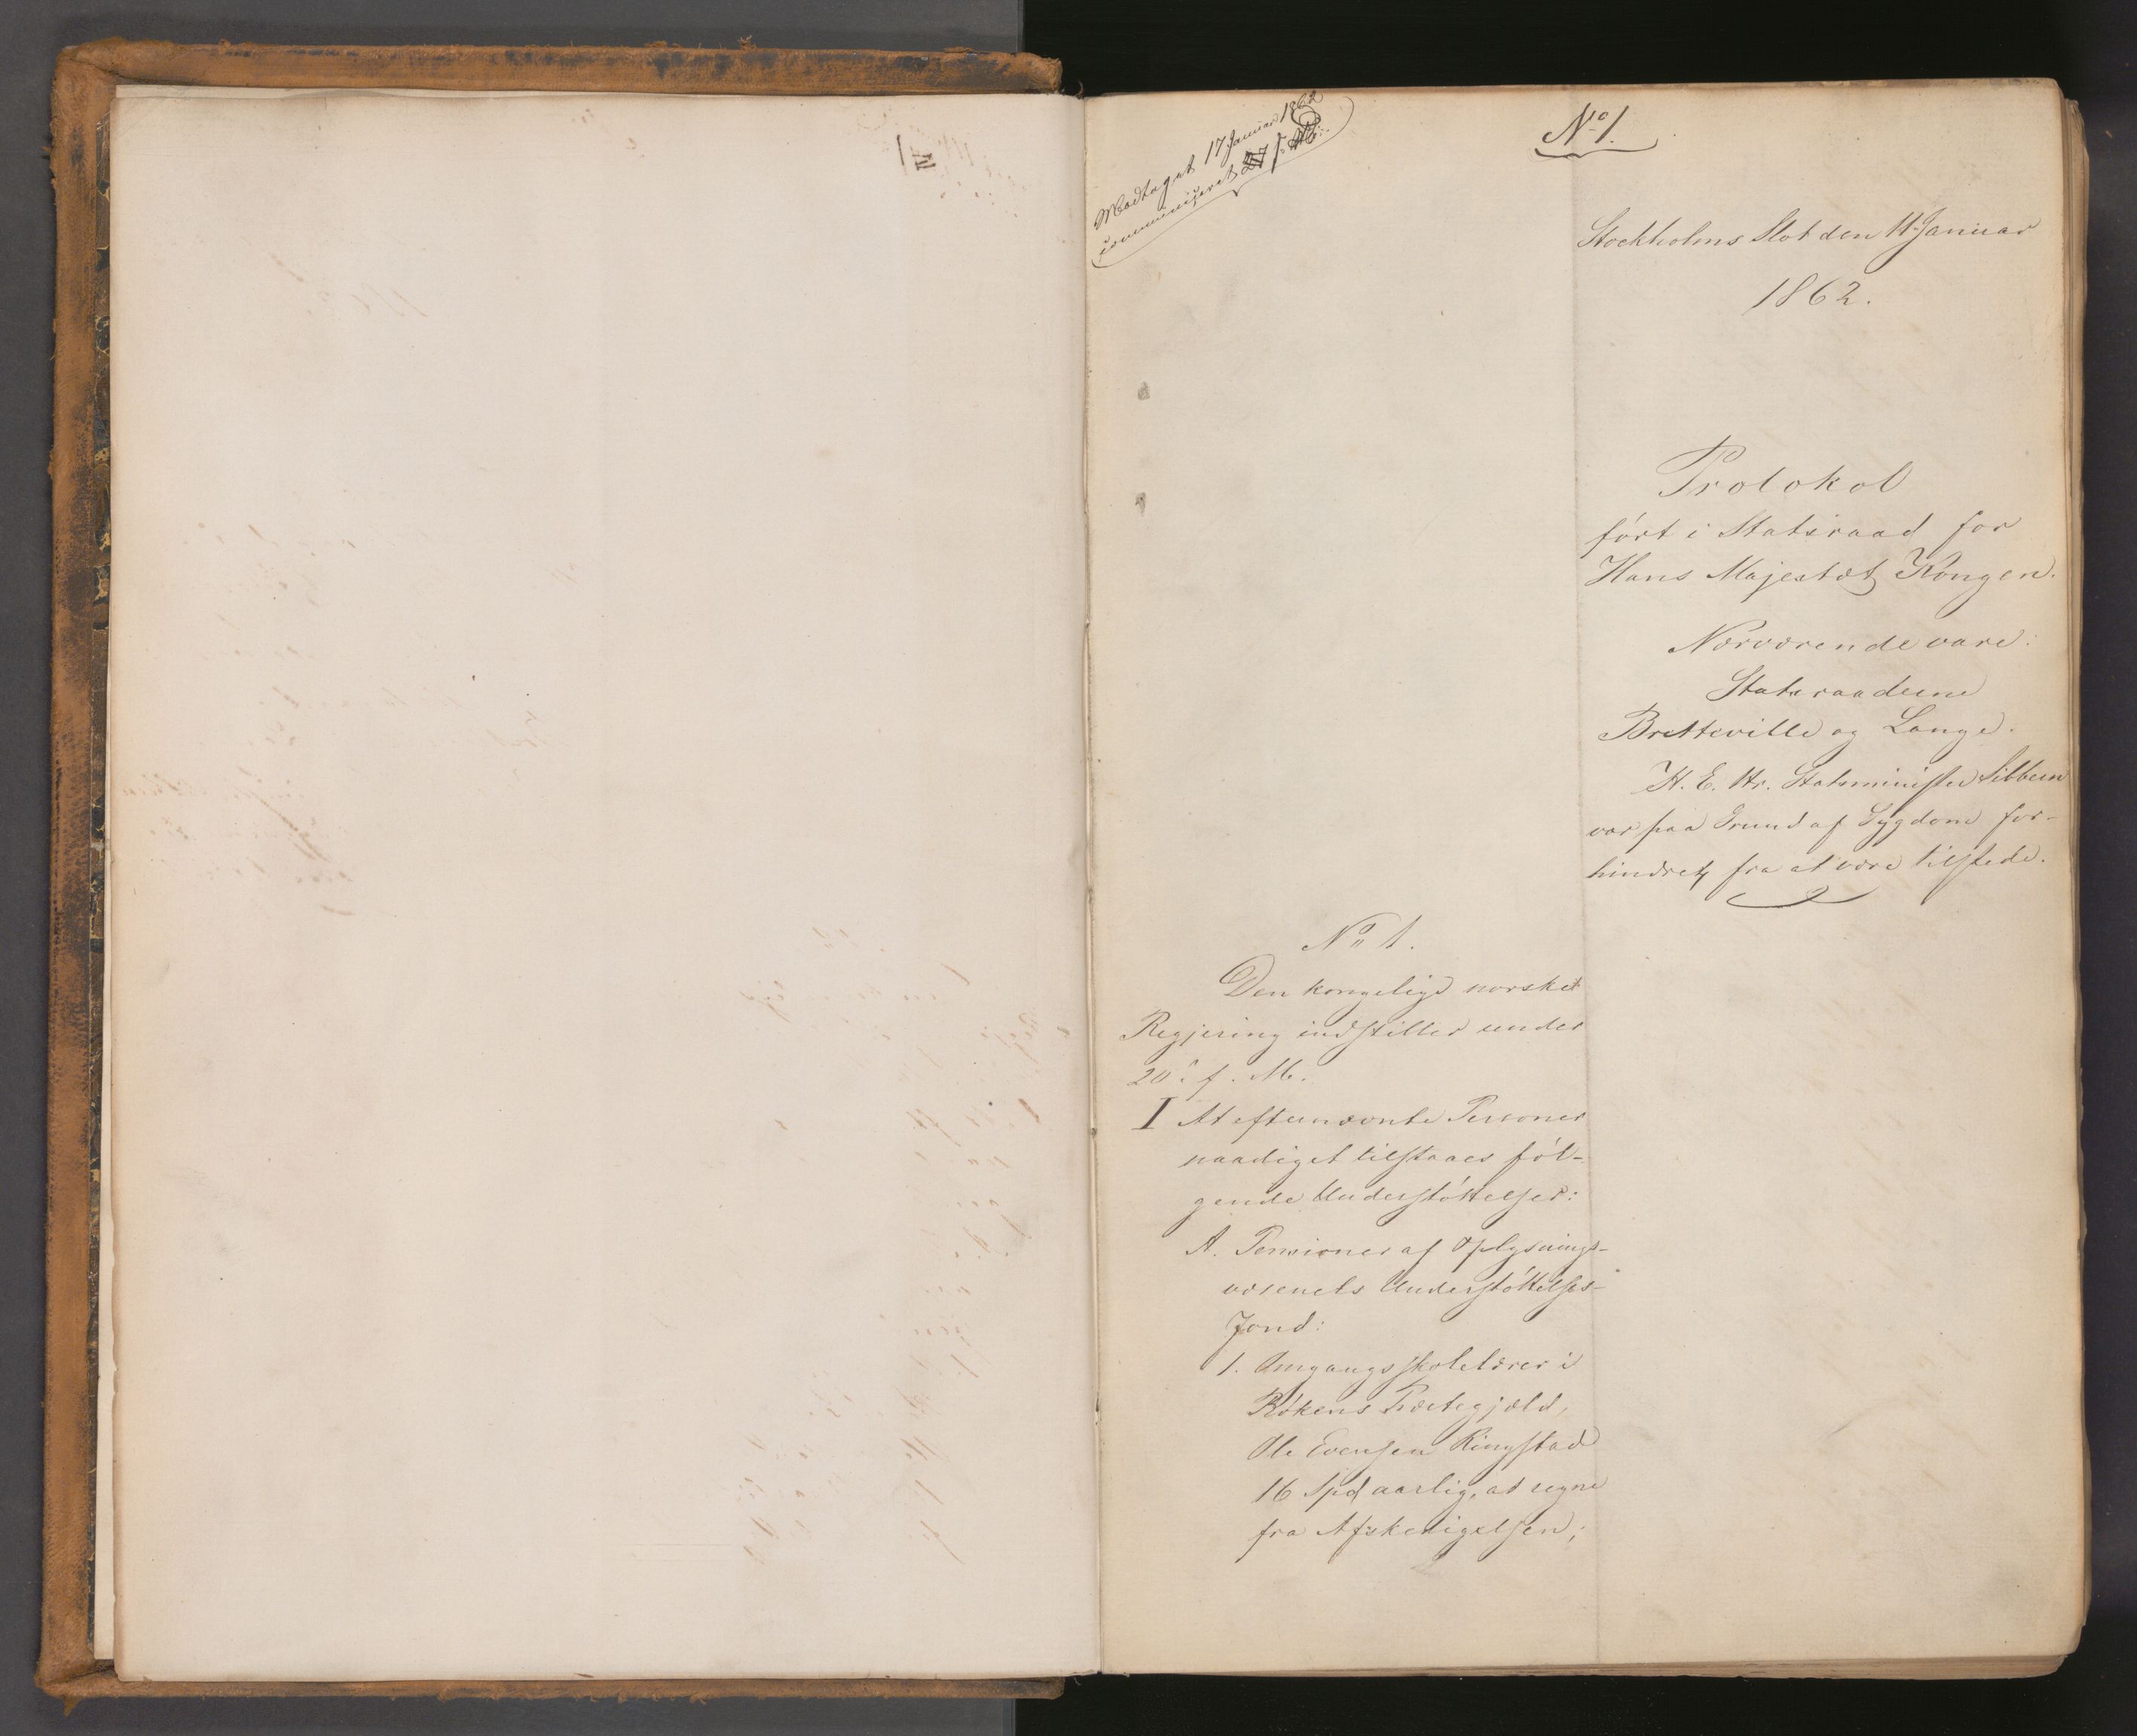 Modtaget 17 Januar 1862
communiceret
No 1.
Stockholms Slot den 11 Januar
1862.
Protokol
ført i Statsraad for
Hans Majestæt Kongen.
Nærværende vare:
Statsraaderne
Bretteville og Lange.
H. E. Hr. Statsminister Sibbern
var paa Grund af Sygdom for-
hindret fra at være tilstede.
No 1.
Den kongelige norske
Regjering indstiller under
20 f. M.
I At efternævnte Personer
naadigst tilstaaes føl-
gende Understøttelser:
A. Pensioner af Oplysnings-
væsenets Understøttelses-
Fond:
1. Omgangsskolelærer i
Røkens Præstegjæld,
Ole Evensen Ringstad
16 Spd aarlig, at regne
fra Afskedigelsen;